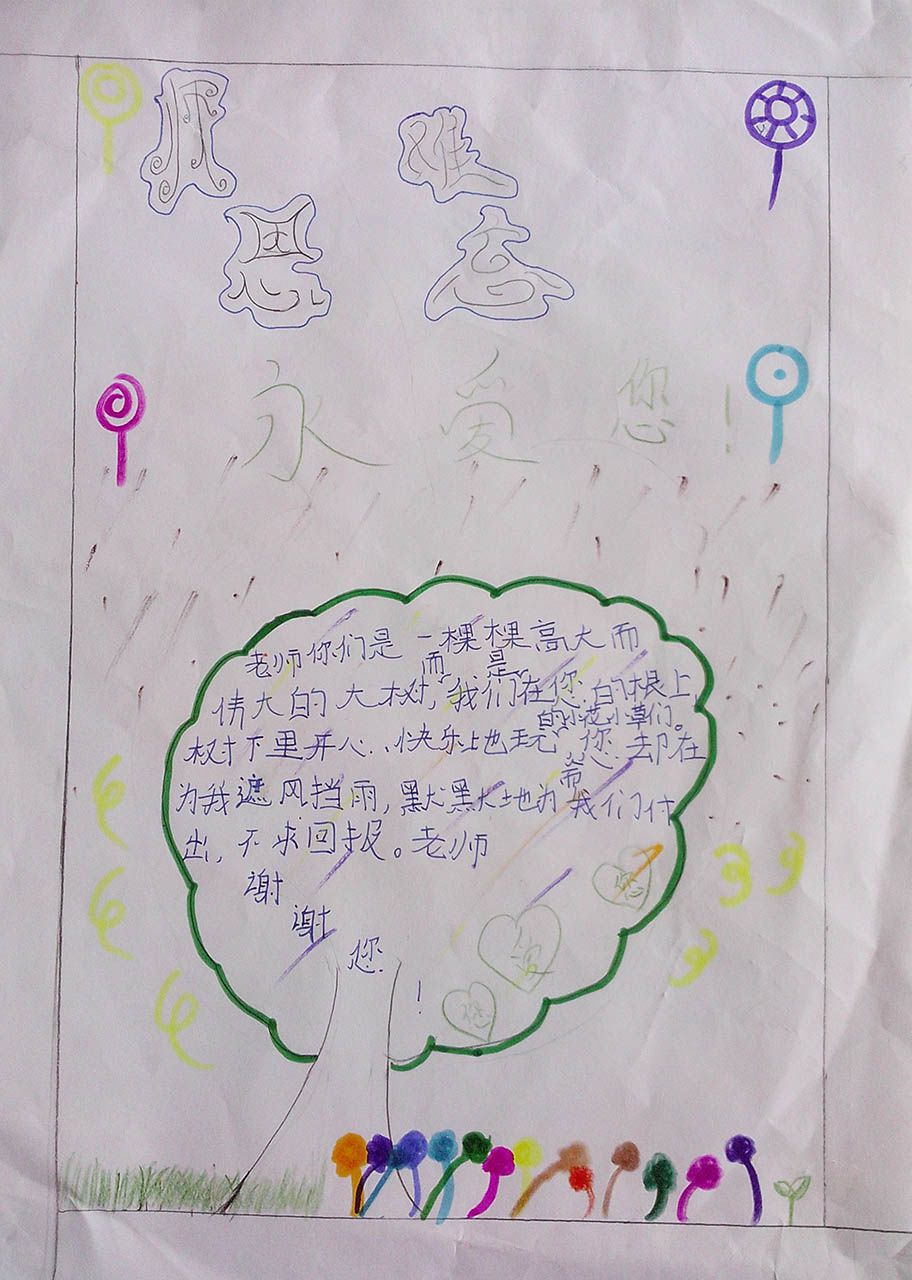 师 难
恩 忘
永 爱 您！
老师你们是一棵棵高大而
而 是
伟大的大树，我们在您的根上，
的小花小草们。
树下里开心、快乐地玩，您却在
而
为我遮风挡雨，默默地为我们付
出，不求回报。老师
谢
谢
您
！
您
爱
您